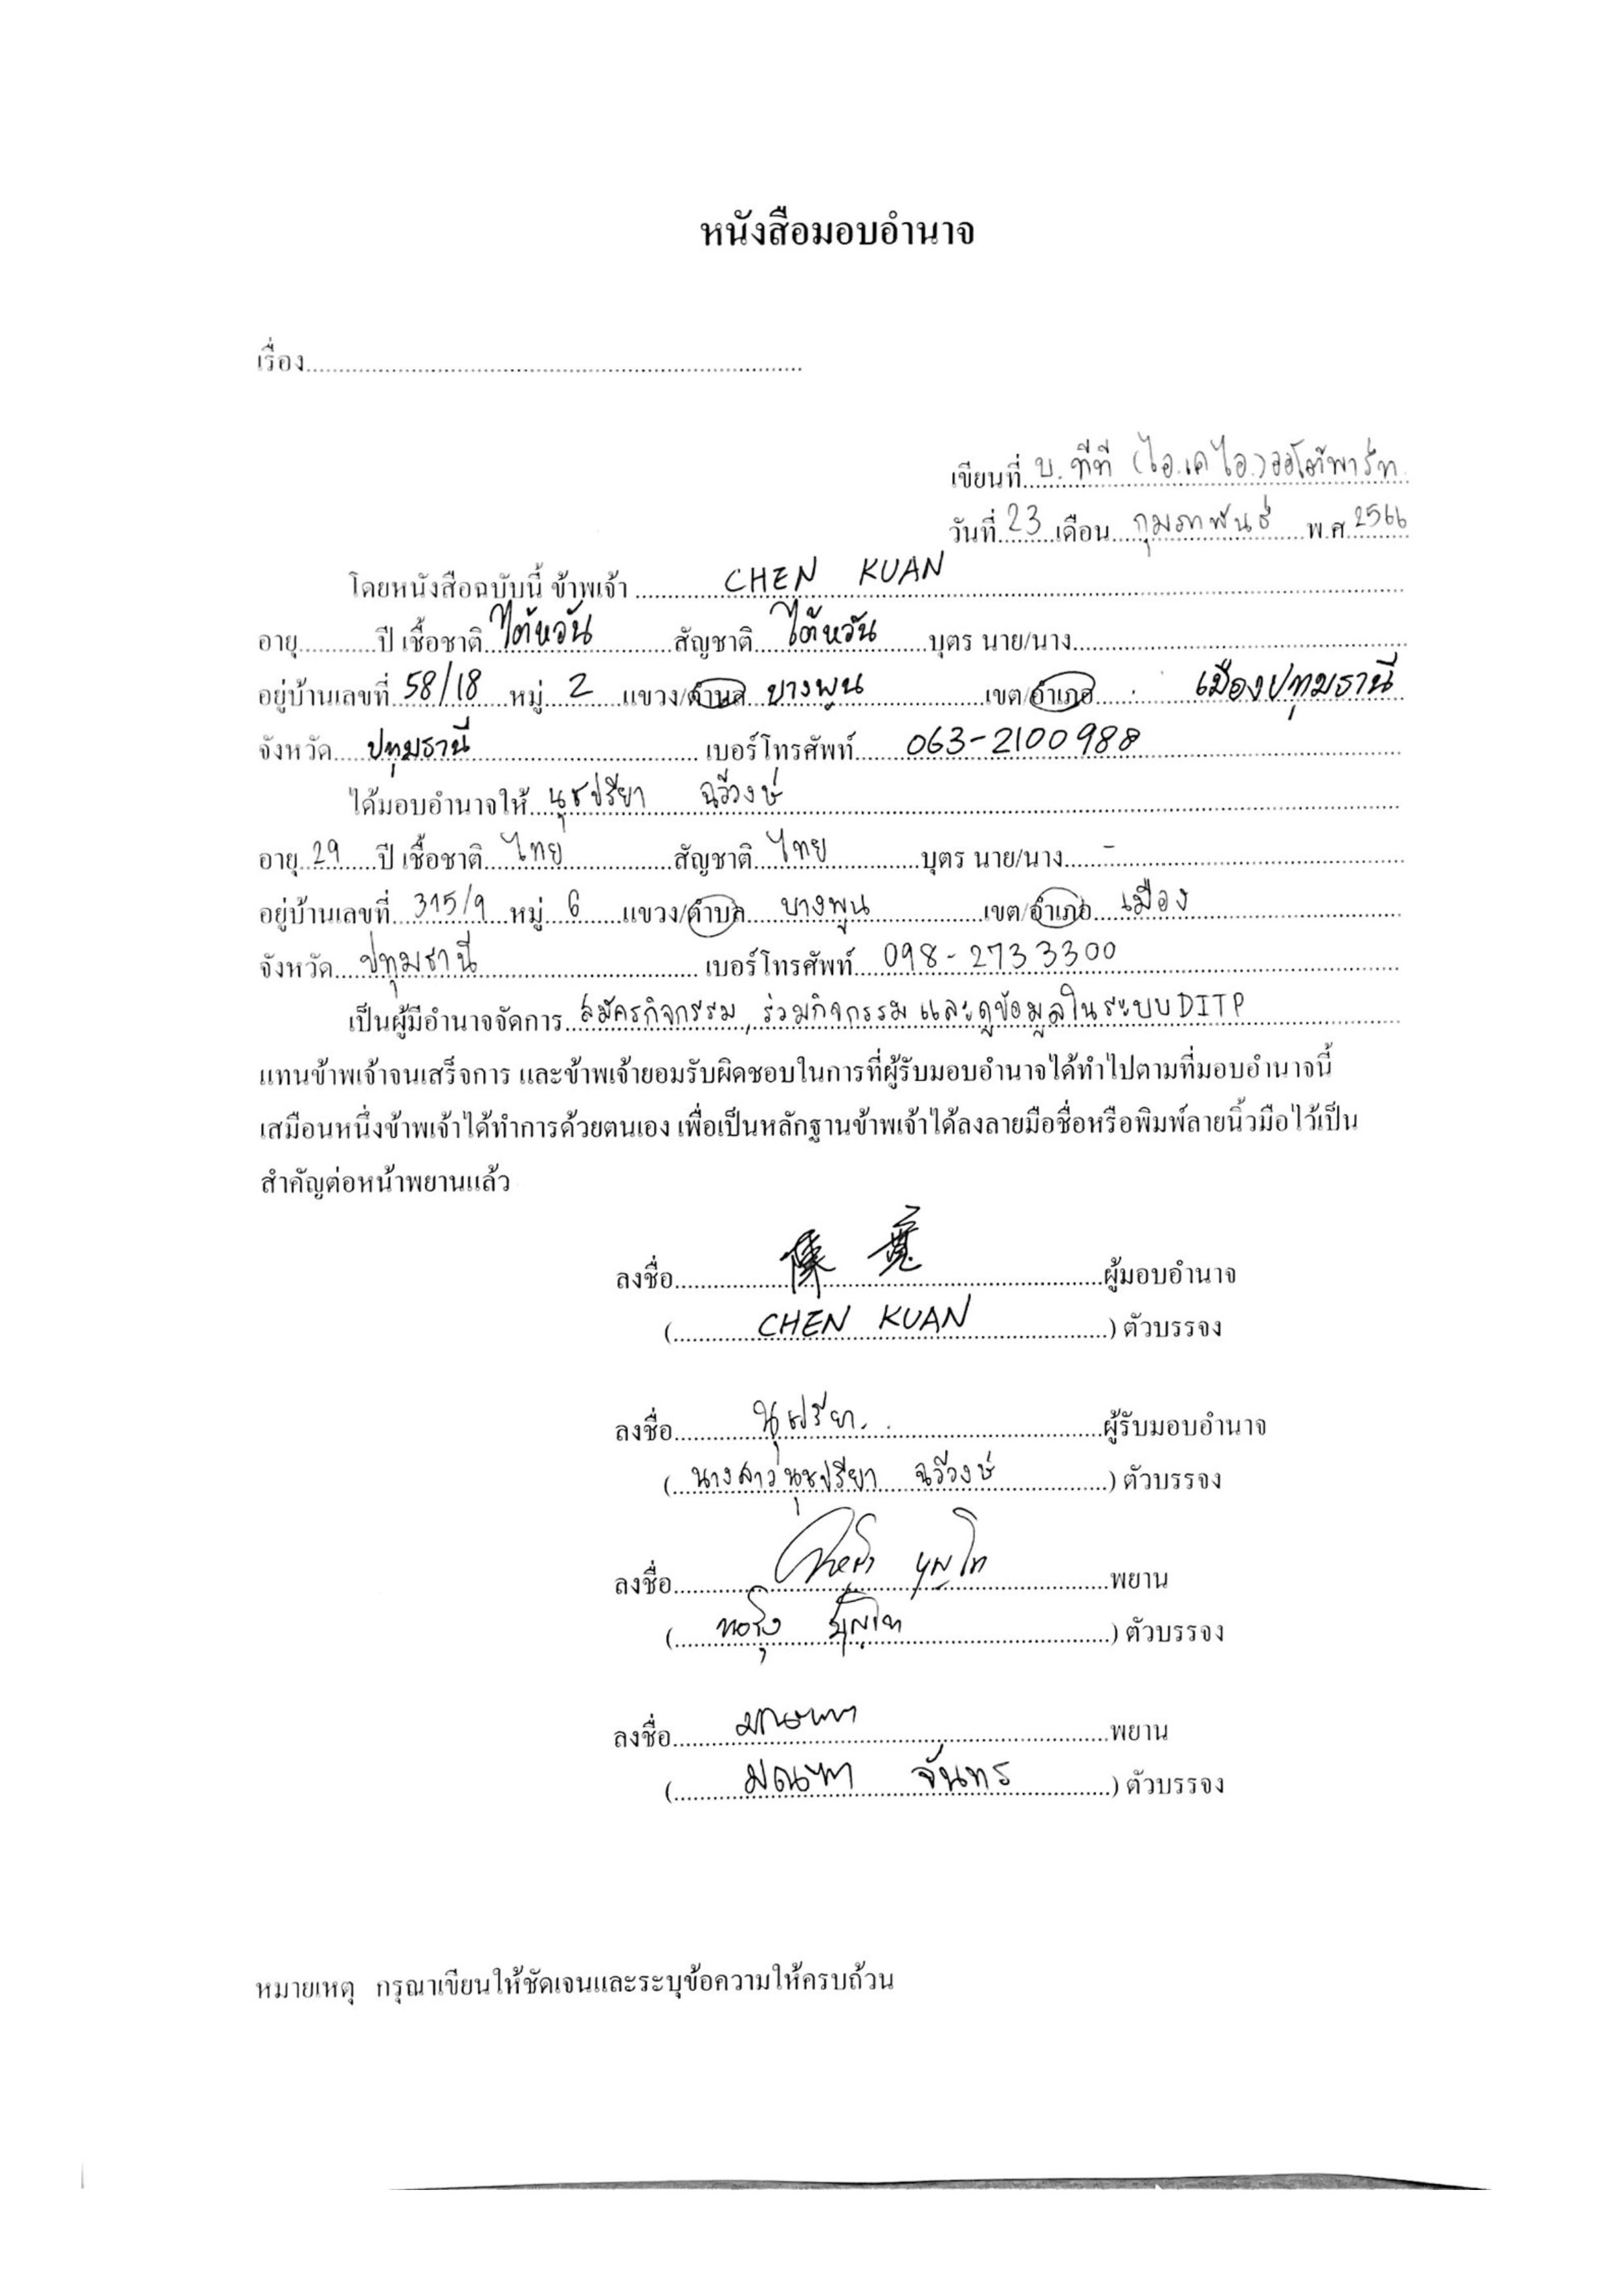 หนังสือมอบอำนาจ
เรื่อง
เขียนที่ บ. ทีที (ไอ.เค ไอ.) ออโต้พาร์ท
วันที่ 23 เดือน กุมภาพันธ์ พ.ศ 2566
โดยหนังสือฉบับนี้ ข้าพเจ้า CHEN KUAN
อายุ ปี เชื้อชาติ ไต้หวัน สัญชาติ ไต้หวัน บุตร นาย/นาง
อยู่บ้านเลขที่ 58/18 หมู่ 2 แขวง/ตำบล บางพูน เขต/อำเภอ เมืองปทุมธานี
จังหวัด ปทุมธานี เบอร์โทรศัพท์ 063-2100988
ได้มอบอำนาจให้ นุชปรียา ฉวีวงษ์
อายุ 29 ปี เชื้อชาติ ไทย สัญชาติ ไทย บุตร นาย/นาง -
อยู่บ้านเลขที่ 315/9 หมู่ 6 แขวง/ตำบล บางพูน เขต/อำเภอ เมือง
จังหวัด ปทุมธานี เบอร์โทรศัพท์ 098-2733300
เป็นผู้มีอำนาจจัดการ สมัครกิจกรรม, ร่วมกิจกรรม และดูข้อมูลในระบบ DITP
แทนข้าพเจ้าจนเสร็จการ และข้าพเจ้ายอมรับผิดชอบในการที่ผู้รับมอบอำนาจได้ทำไปตามที่มอบอำนาจนี้
เสมือนหนึ่งข้าพเจ้าได้ทำการด้วยตนเอง เพื่อเป็นหลักฐานข้าพเจ้าได้ลงลายมือชื่อหรือพิมพ์ลายนิ้วมือไว้เป็น
สำคัญต่อหน้าพยานแล้ว
ลงชื่อ 陳 寬 ผู้มอบอำนาจ
( CHEN KUAN ) ตัวบรรจง
ลงชื่อ นุชปรียา ผู้รับมอบอำนาจ
( นางสาวนุชปรียา ฉวีวงษ์ ) ตัวบรรจง
ลงชื่อ พยาน
( บุญโท ) ตัวบรรจง
ลงชื่อ พยาน
( จันทร ) ตัวบรรจง
หมายเหตุ กรุณาเขียนให้ชัดเจนและระบุข้อความให้ครบถ้วน